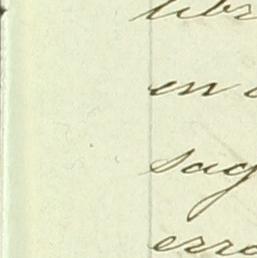 libr
en
sag
erro